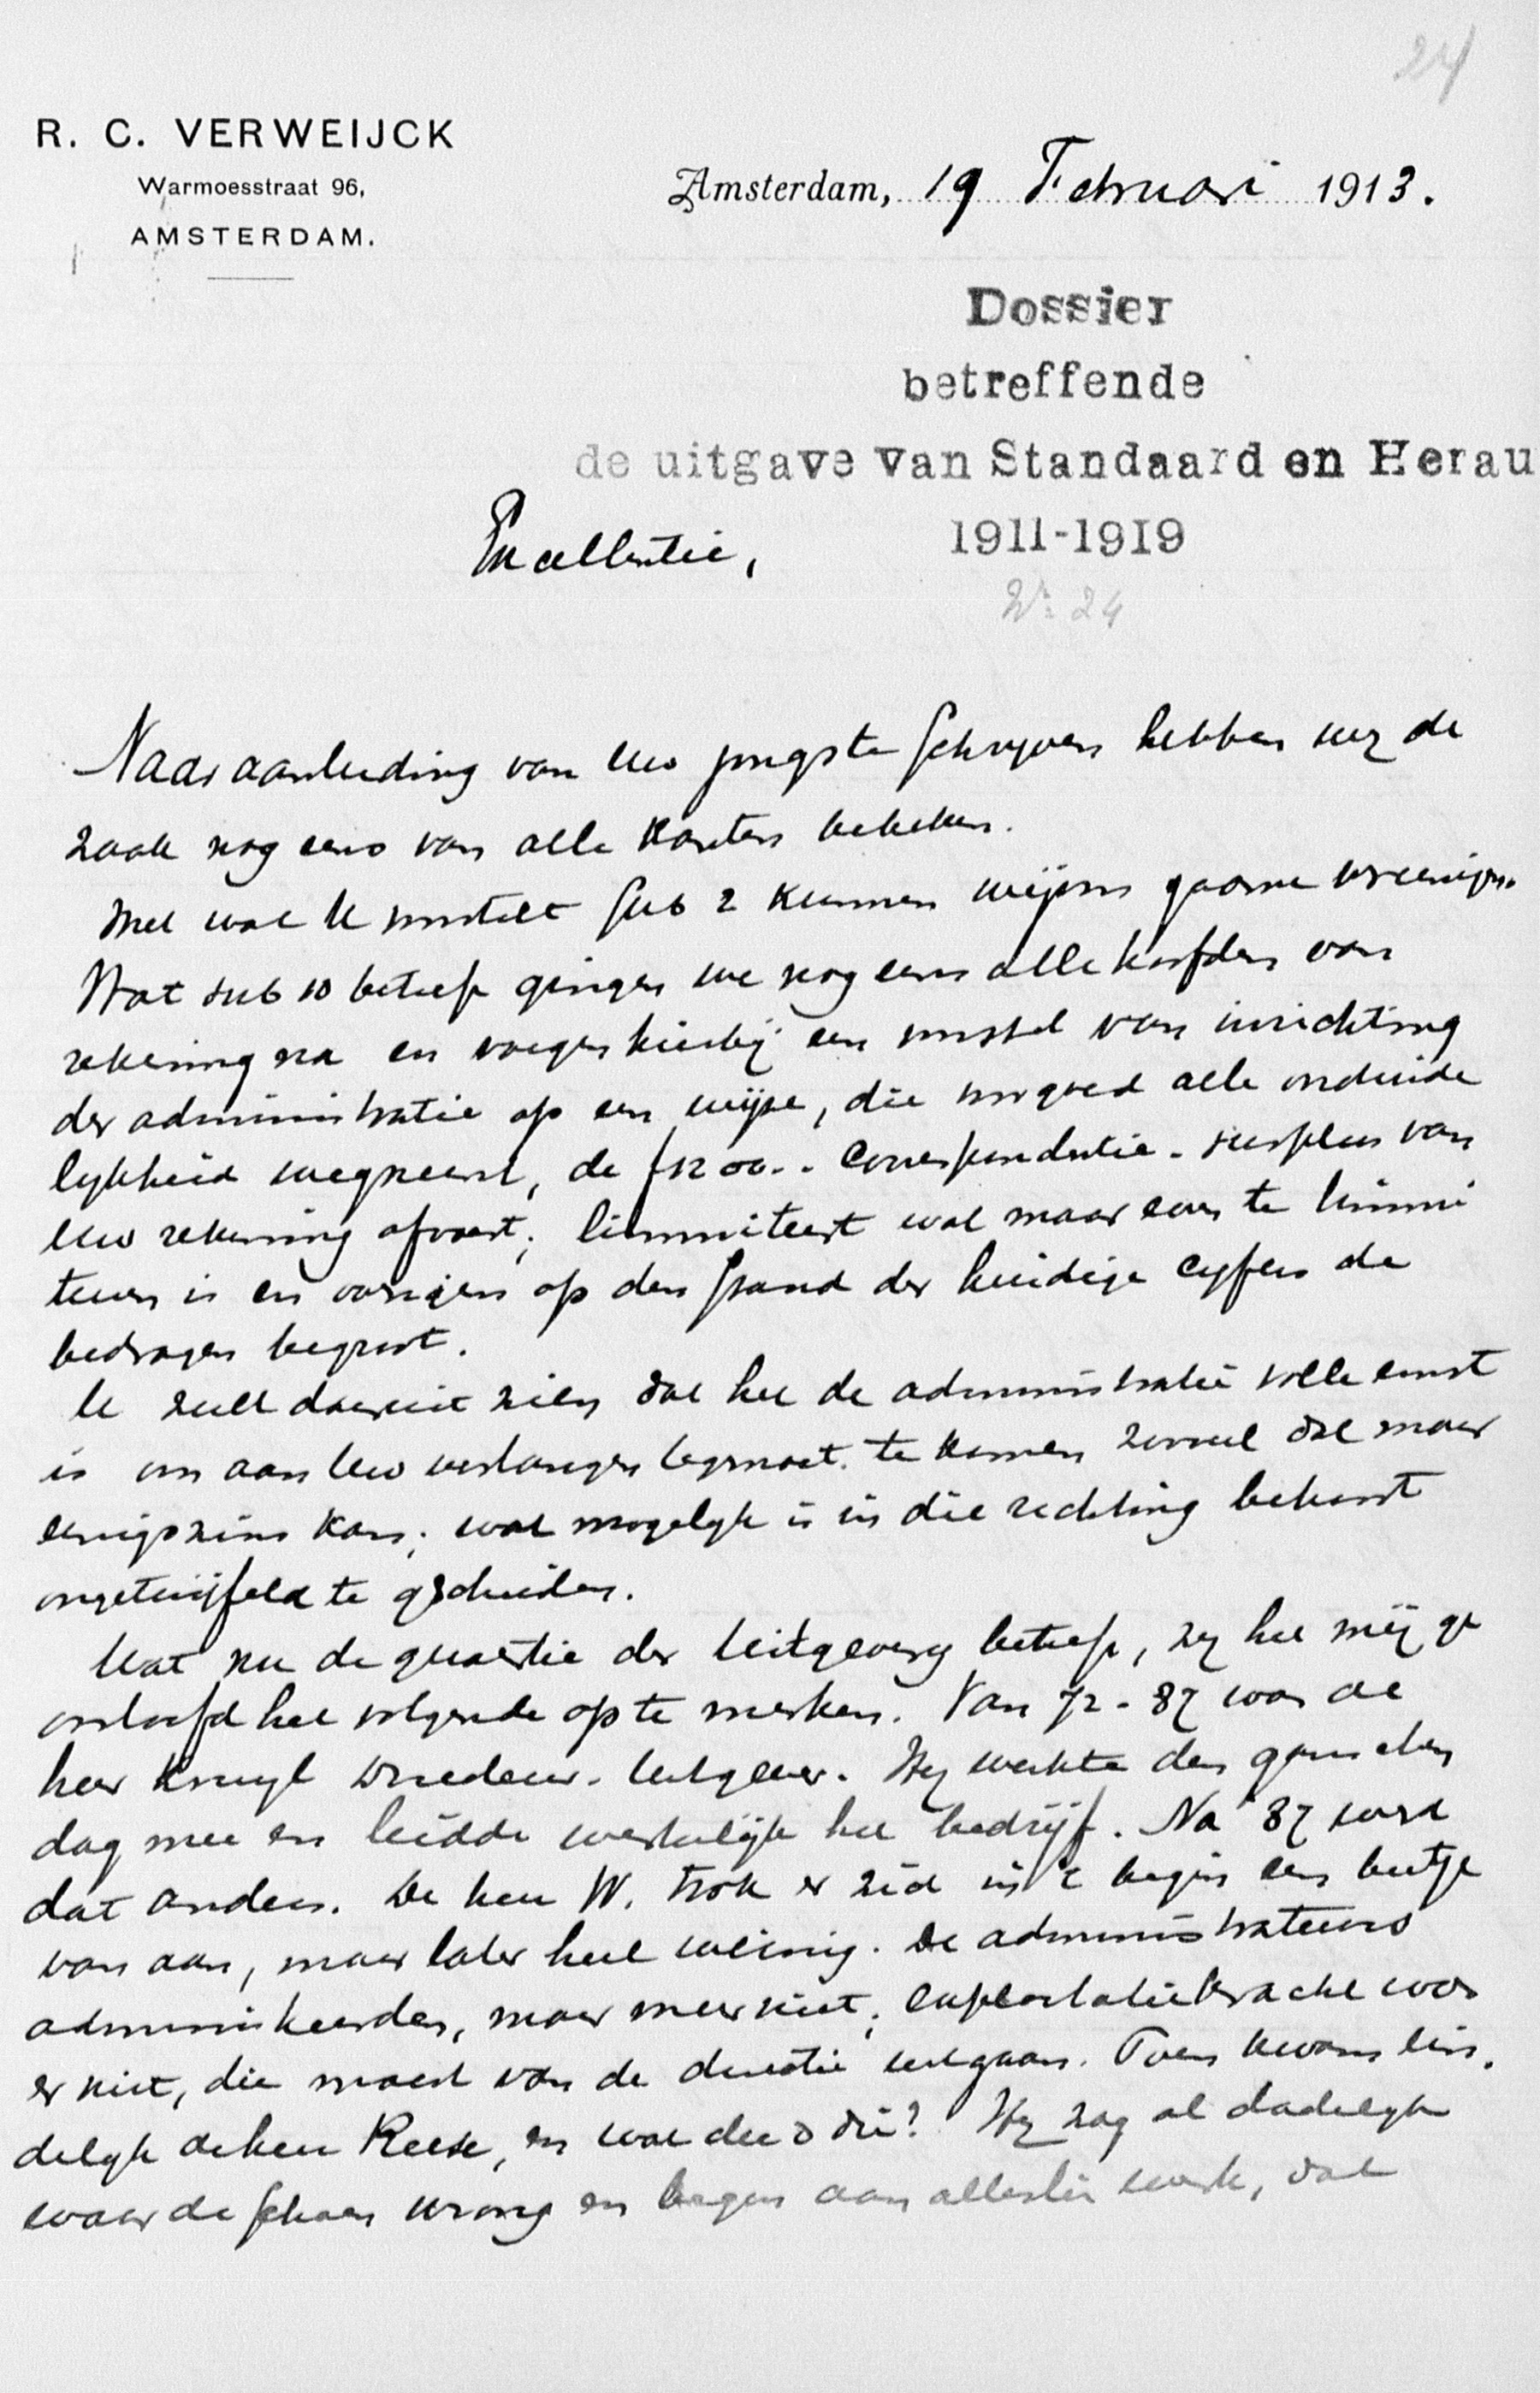 24
R. C. VERWEIJCK
Warmoesstraat 96,
AMSTERDAM.
Amsterdam, 19 Februari 1913.
Dossier
betreffende
de uitgave van Standaard en Herau
1911-1919
No 24
Excellentie,
Naar aanleiding van Uw jongste schrijven hebben wij de
zaak nog eens van alle kanten bekeken.
Met wat U voorstelt sub 2 kunnen wij ons gaarne vereenigen.
Wat sub 10 betreft gingen we nog eens alle hoofden van
rekening na en voegen hierbij een voorstel van inrichting
der administratie op een wijze, die voorgoed alle onduide
lijkheid wegneemt, de f 1200.- correspondentie-surplus van
Uw rekening afvoert; limmiteert wat maar even te limmi
teeren is en overigens op den grond der huidige cyfers de
bedragen begroot.
U zult daaruit zien dat het de administratie volle ernst
is om aan Uw verlangen tegemoet te komen zooveel dat maar
eenigszins kan; wat mogelyk is in die richting behoort
ongetwijfeld te geschieden.
Wat nu de quaestie der Uitgeverij betreft, zij het mij ge
oorloofd het volgende op te merken. Van 72-87 was de
heer Kruyt Directeur-Uitgever. Hij werkte den ganschen
dag mee en leidde werkelijk het bedrijf. Na '87 werd
dat anders. De heer W. trok er zich in 't begin een beetje
van aan, maar later heel weinig. De administrateurs
administreerden, maar meer niet; exploitatiekracht was
er niet, die moest van de directie uitgaan. Toen kwam ein-
delyk de heer Reese, en wat deed die? Hij zag al dadelyk
waar de schoen wrong en begon aan allerlei werk, dat